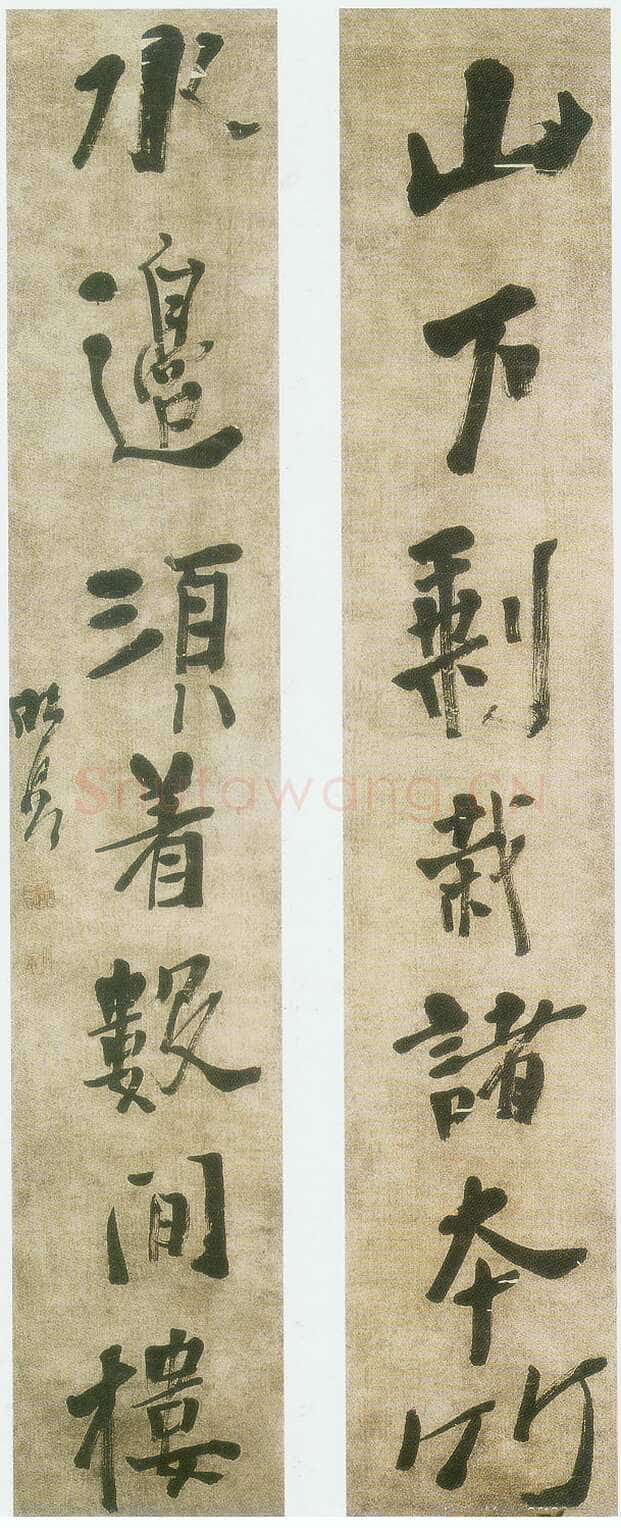 山下剩栽諸本竹
水邊須着數間樓
Shufawang.CN